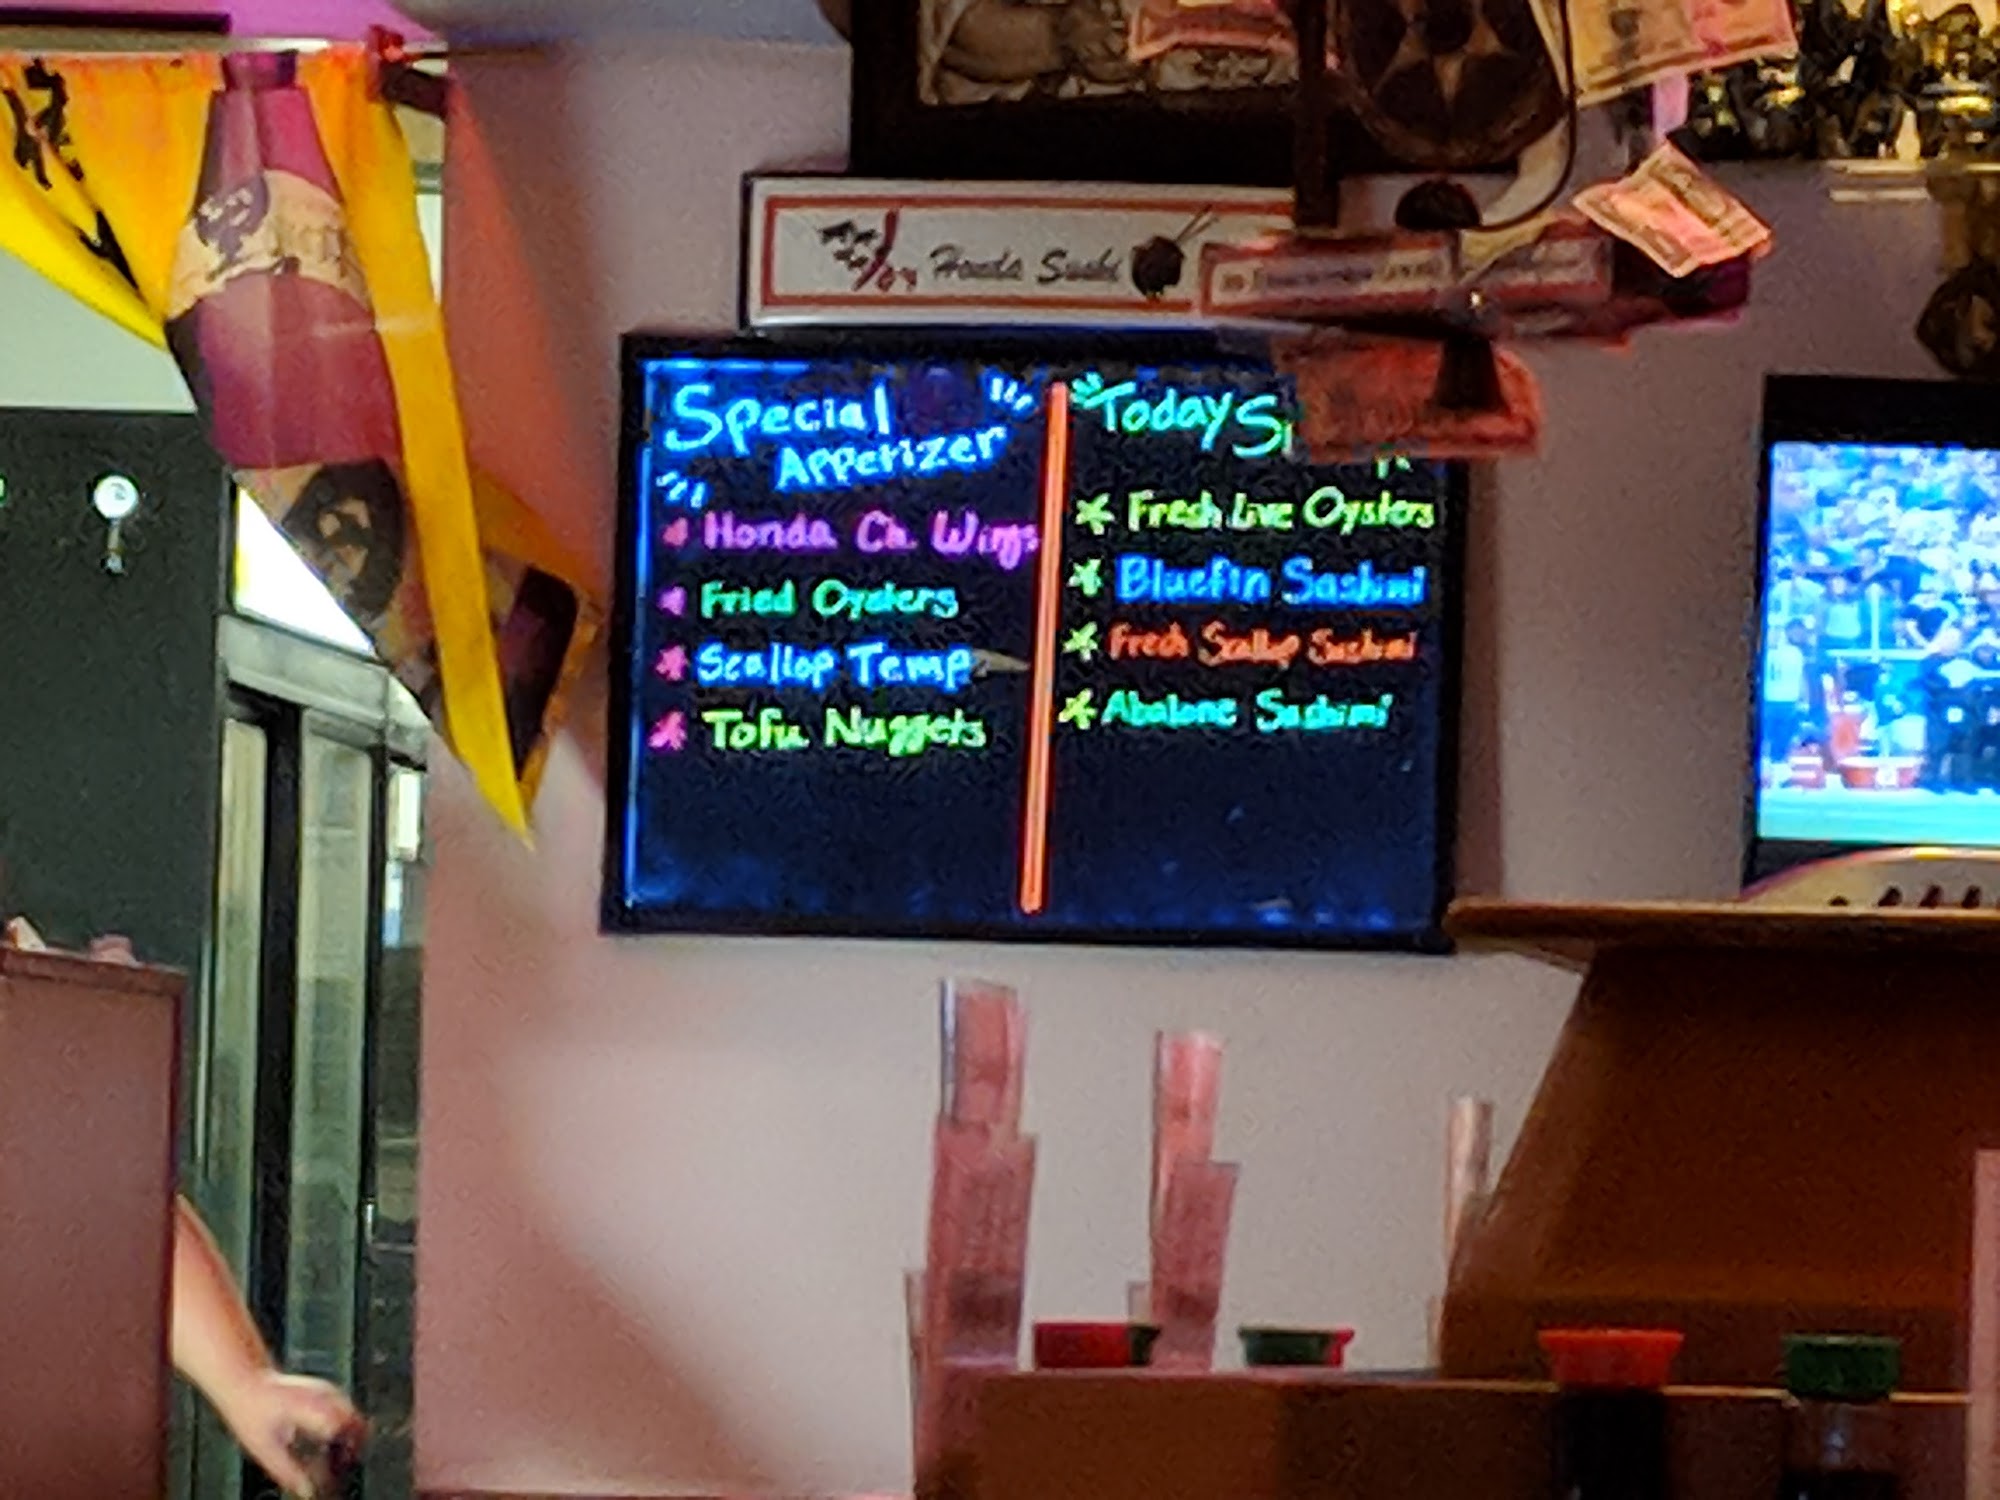 Honda Sushi
Special
Appetizer
Honda Ch. Wings
Fried Oysters
Scallop Temp
Tofu Nuggets
Today
Fresh Live Oysters
Bluefin Sashimi
Fresh Scallop Sashimi
Abalone Sashimi